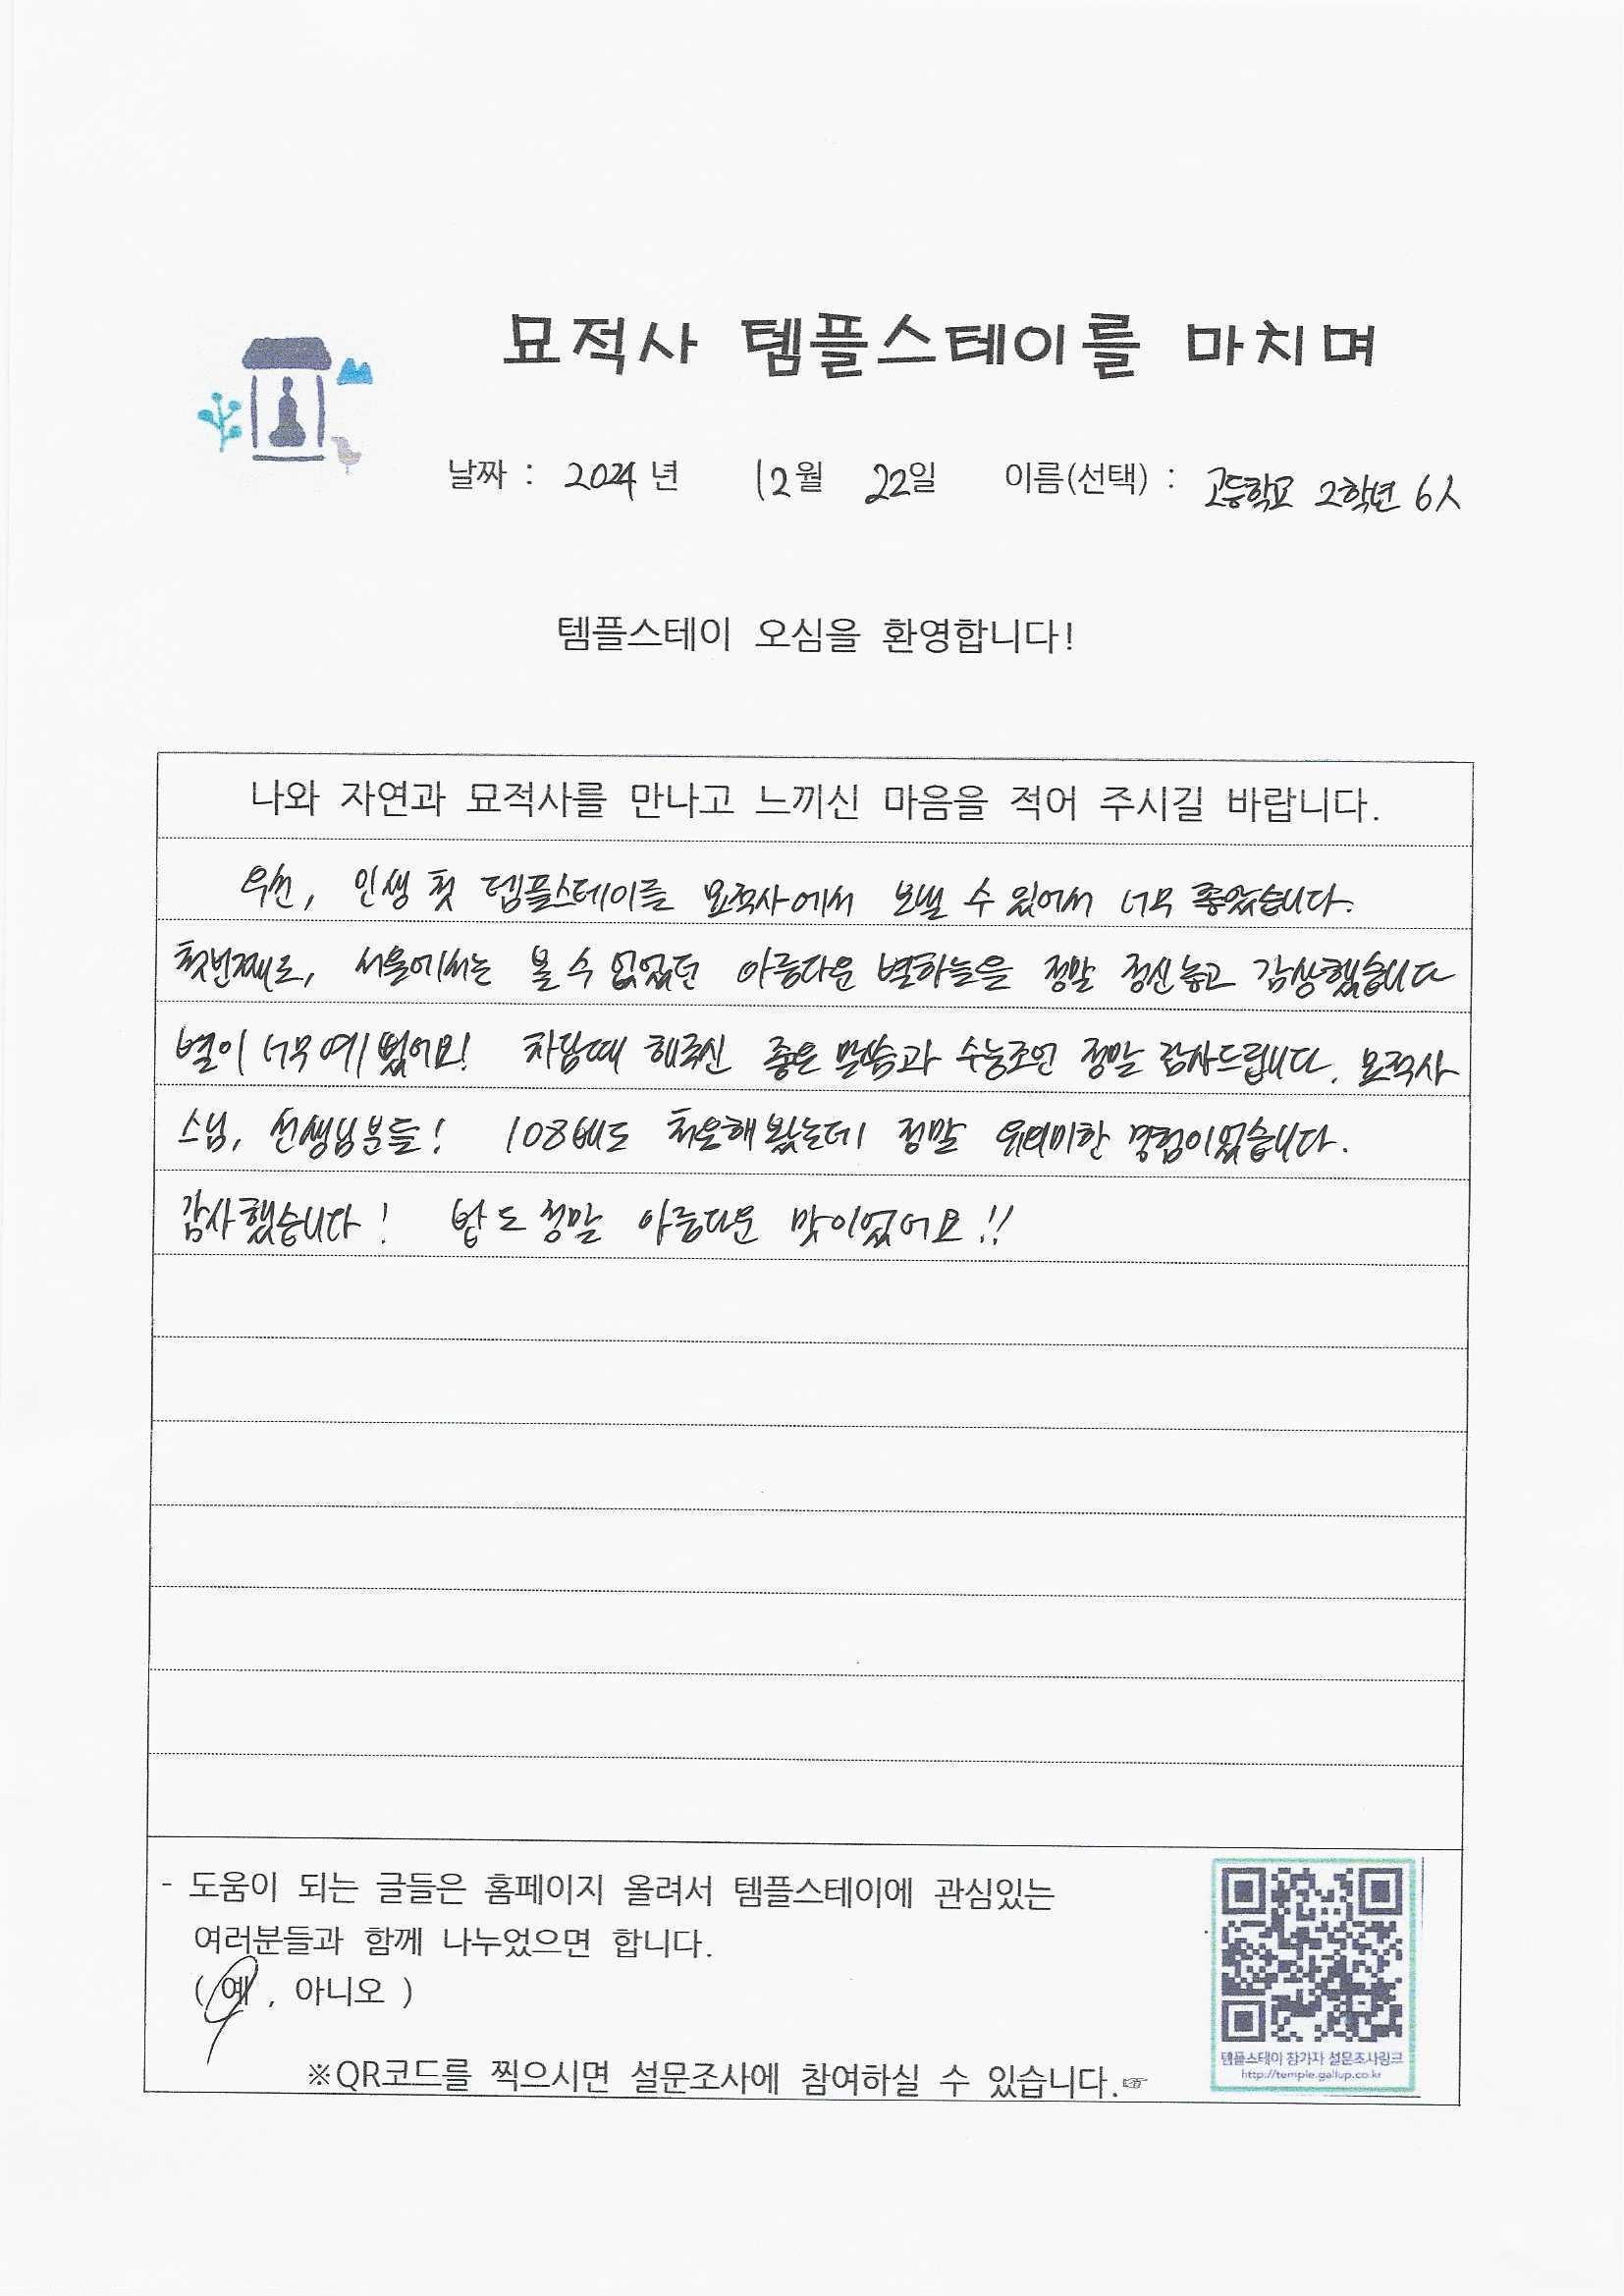 묘적사 템플스테이를 마치며
날짜 : 2024년 12월 22일 이름(선택) : 고등학교 2학년 6人
템플스테이 오심을 환영합니다!
나와 자연과 묘적사를 만나고 느끼신 마음을 적어 주시길 바랍니다.
우선, 인생 첫 템플스테이를 묘적사에서 보낼 수 있어서 너무 좋았습니다.
첫번째로, 서울에서는 볼 수 없었던 아름다운 별하늘을 정말 정신놓고 감상했습니다
별이 너무 예뻤어요! 차담때 해주신 좋은 말씀과 수능조언 정말 감사드립니다. 묘적사
스님, 선생님분들! 108배도 처음해봤는데 정말 유의미한 경험이었습니다.
감사했습니다! 밥도 정말 아름다운 맛이었어요!!
- 도움이 되는 글들은 홈페이지 올려서 템플스테이에 관심있는
여러분들과 함께 나누었으면 합니다.
( 예 , 아니오 )
※QR코드를 찍으시면 설문조사에 참여하실 수 있습니다.☞
템플스테이 참가자 설문조사링크
http://temple.gallup.co.kr